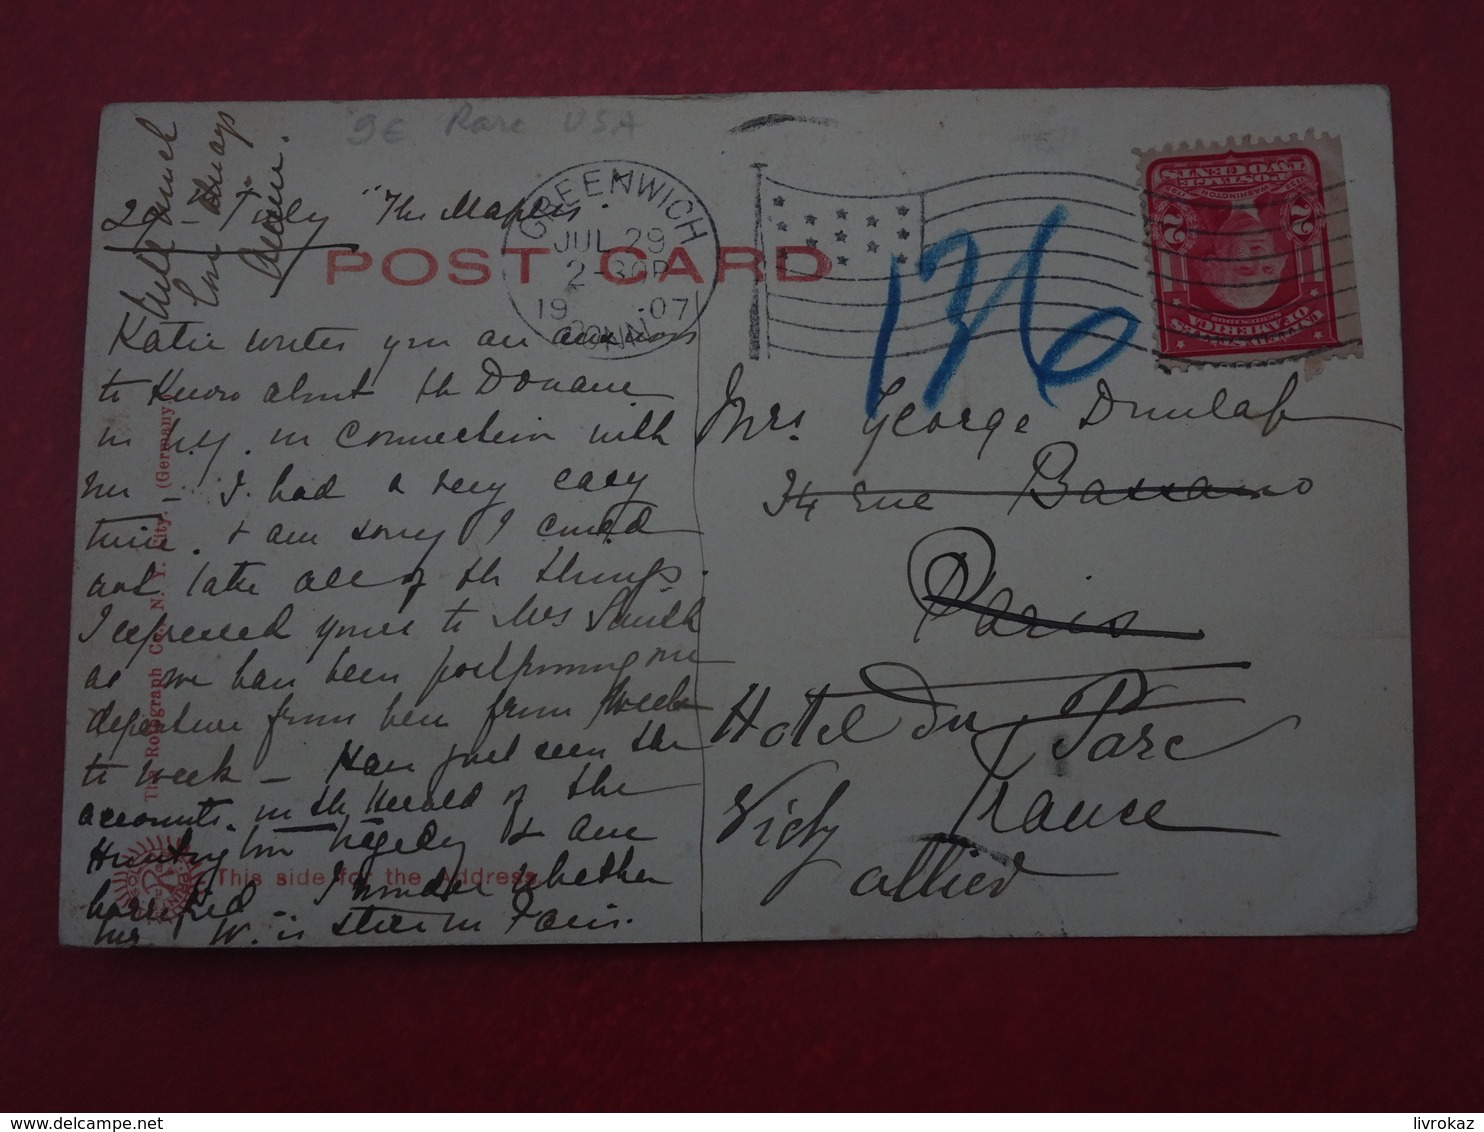 96 Rare USA
29th July "The Maples.
POST CARD
GREENWICH
JUL 29
2-30P
19 07
CONN.
136
UNITED STATES
OF AMERICA
2 2
WASHINGTON
POSTAGE
TWO CENTS
Katie writes you are anxious
to know about the Douane
in N.Y. in connection with
me – I had a very easy
time. & am sorry I could
not take all of the things.
I expressed yours to Mrs Smith
as we have been postponing our
departure from here from week
to week – Have just seen the
accounts in the Herald of the
Huntington tragedy & am
horrified – I wonder whether
Mrs W. is still in Paris.
much
love
always
Mrs. George Dunlap
34 rue Bassano
Paris
Hotel du Parc
France
Vichy
allier
The Rotograph Co., N. Y. City. (Germany)
This side for the Address
livrokaz
delcampe.net